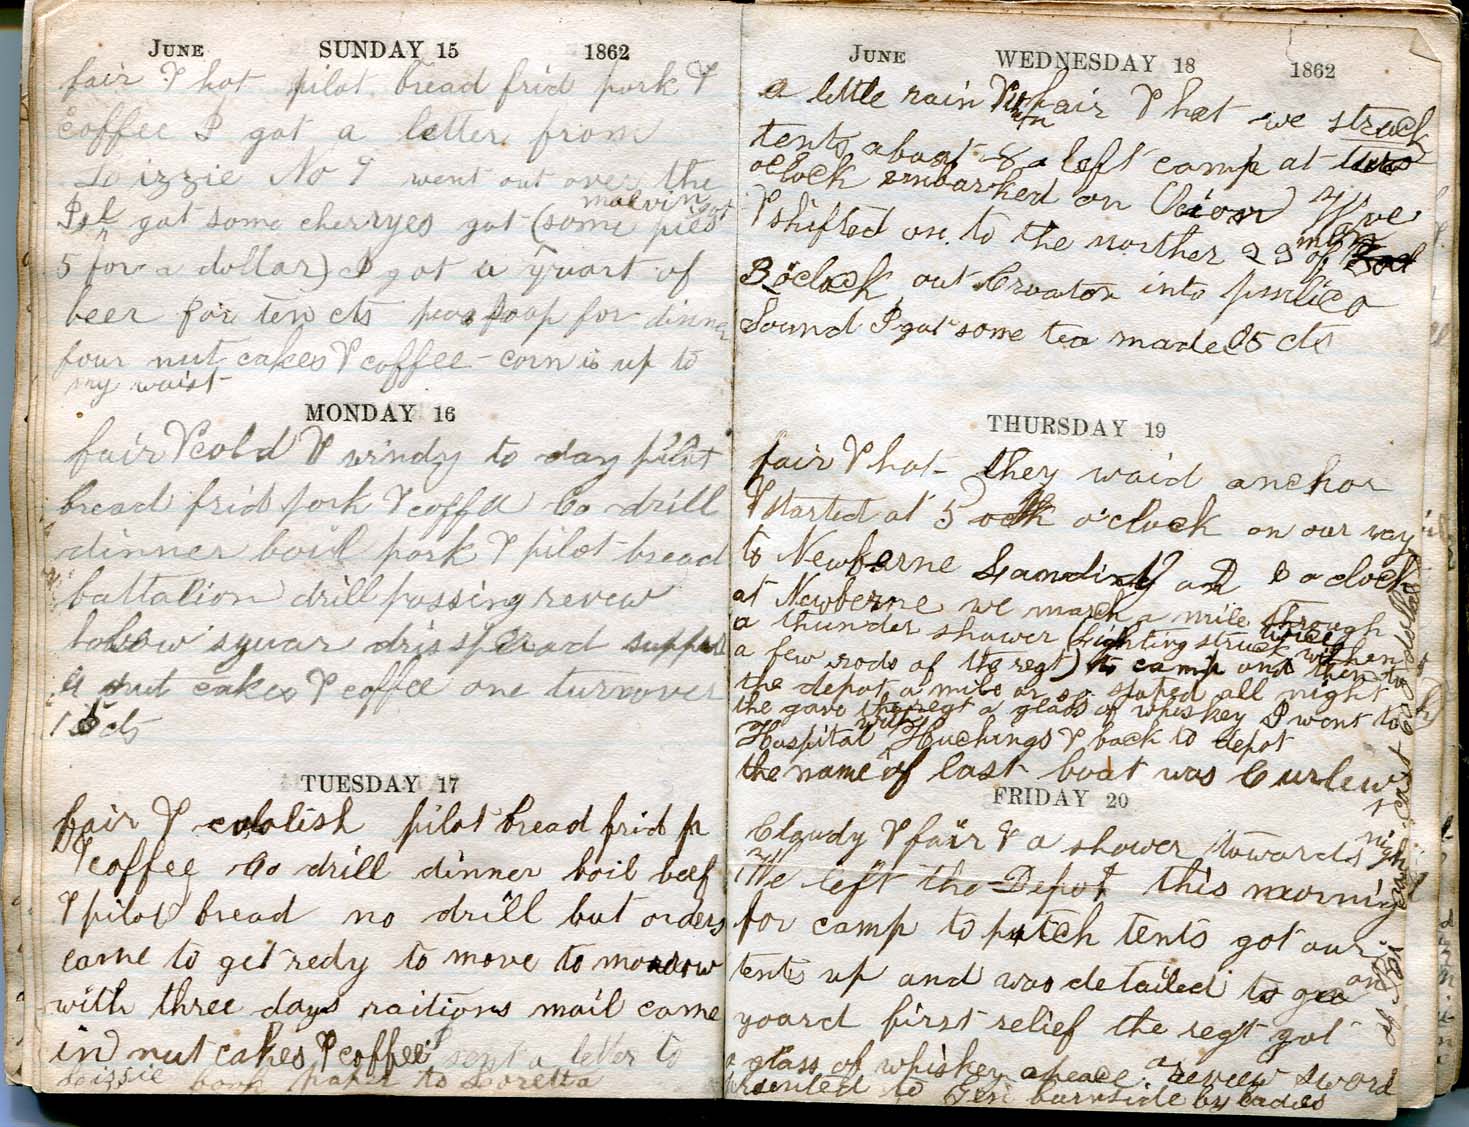 JUNE SUNDAY 15 1862
fair & hot pilot bread frid pork &
coffee I got a letter from
Lizzie No 9 went out over the
malvin got
Isl got some cherryes got (some pies
5 for a dollar) I got a quart of
beer for ten cts peas soap for dinner
four nut cakes & coffee - corn is up to
my waist
MONDAY 16
fair & cold & windy to day pilot
bread frid pork & coffee Co drill
dinner boil pork & pilot bread
battalion drill passing revew
holow squar drissperad supper
4 nut cakes & coffee one turnover
15 cts
TUESDAY 17
fair & coolish pilot bread frid p
& coffee Co drill dinner boil beef
& pilot bread no drill but orders
came to get redy to move to morrow
with three days raitions mail came
in nut cakes & coffee I sent a letter to
Lizzie paper to Loretta
JUNE WEDNESDAY 18 1862
a little rain & fair & hot we struck
tents about 8 a left camp at
oclock embarked on Union
& shifted on to the norther 29 min of
3 oclock out Croaton into pimlico
Sound I got some tea made 25 cts
THURSDAY 19
fair & hot - they waid anchor
& started at 5 o'clock on our way
to Newberne Landing 8 oclock
at Newberne we march a mile through
a thunder shower (Lighting struck twice within
a few rods of the regt) to camp and then to
the depot a mile or so stoped all night
the gave the regt a glass of whiskey I went to
Hospital with Huchings & back to depot
the name of last boat was Curlew
FRIDAY 20
Cloudy & fair & a shower towards night
We left the Depot this morning
for camp to putch tents got our
tents up and was detailed to go on
goard first relief the regt got
a glass of whiskey apeace a revew sword
prsented to Gen burnside by ladies
of cost dollar